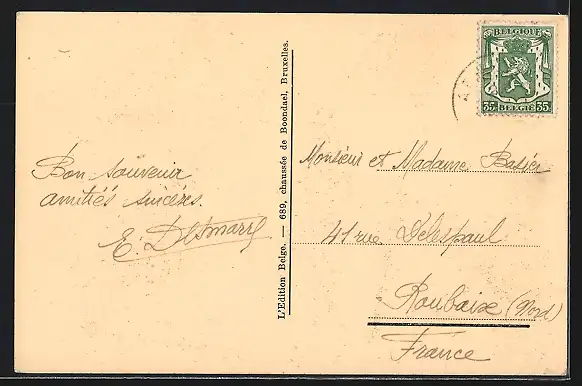 BELGIQUE
35 35
BELGIË
Bon souvenir
amitiés sincères.
E. Desmarry
L'Edition Belge. — 689, chaussée de Boondael, Bruxelles.
Monsieur et Madame
41 rue Delespaul
Roubaix (Nord)
France